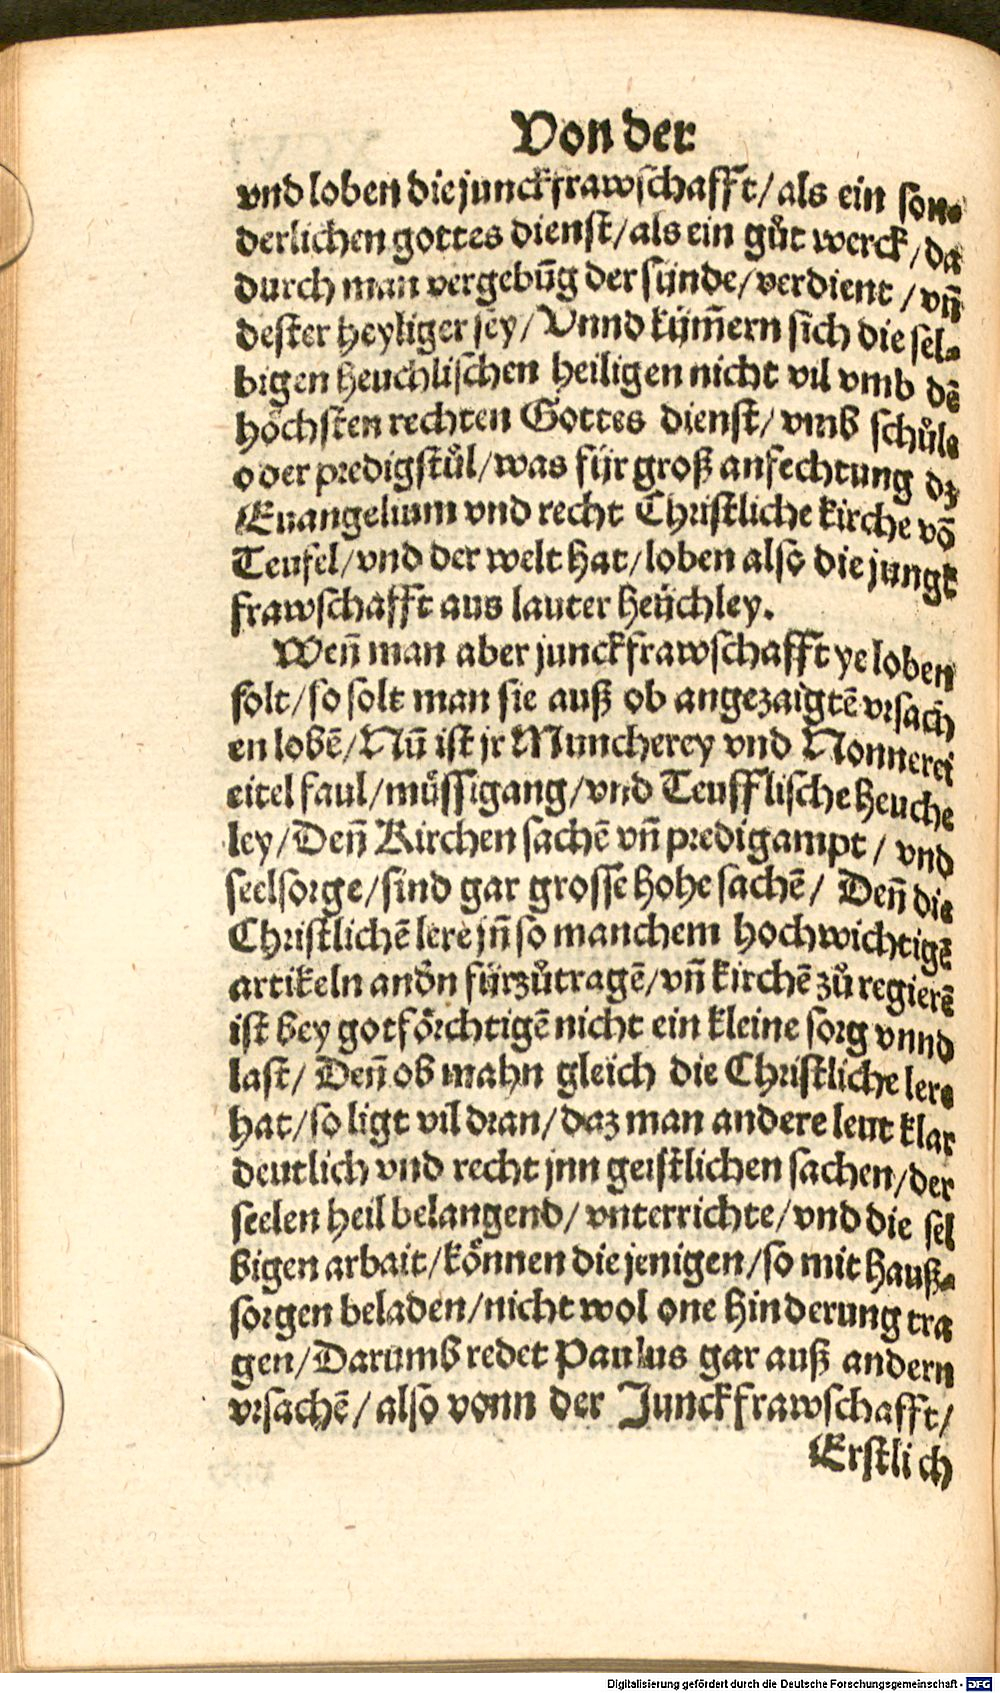 Von der
vnd loben die junckfrawschafft/als ein son-
derlichen gottes dienst/als ein gůt werck/da
durch man vergebūg der sünde/verdient/vñ
dester heyliger sey/Vnnd küm̄ern sich die sel-
bigen heuchlischen heiligen nicht vil vmb dē
höchsten rechten Gottes dienst/vmb schůle
oder predigstůl/was für groß anfechtung dz
Euangelium vnd recht Christliche kirche vō
Teufel/vnd der welt hat/loben also die jungk
frawschafft aus lauter heüchley.
Weñ man aber junckfrawschafft ye loben
solt/so solt man sie auß ob angezaigtē vrsach
en lobē/Nū ist jr Muncherey vnd Nonnerei
eitel faul/müssigang/vnd Teufflische heuche
ley/Deñ Kirchen sachē vñ predigampt/vnd
seelsorge/sind gar grosse hohe sachē/Deñ die
Christlichē lere jñ so manchem hochwichtigē
artikeln andn̄ fürzůtragē/vñ kirchē zů regierē
ist bey gotförchtigē nicht ein kleine sorg vnnd
last/Deñ ob mahn gleich die Christliche lere
hat/so ligt vil dran/daz man andere leut klar
deutlich vnd recht jnn geistlichen sachen/der
seelen heil belangend/vnterrichte/vnd die sel
bigen arbait/können die jenigen/so mit hauß-
sorgen beladen/nicht wol one hinderung tra
gen/Darumb redet Paulus gar auß andern
vrsachē/also vonn der Junckfrawschafft/
Erstlich
Digitalisierung gefördert durch die Deutsche Forschungsgemeinschaft - DFG